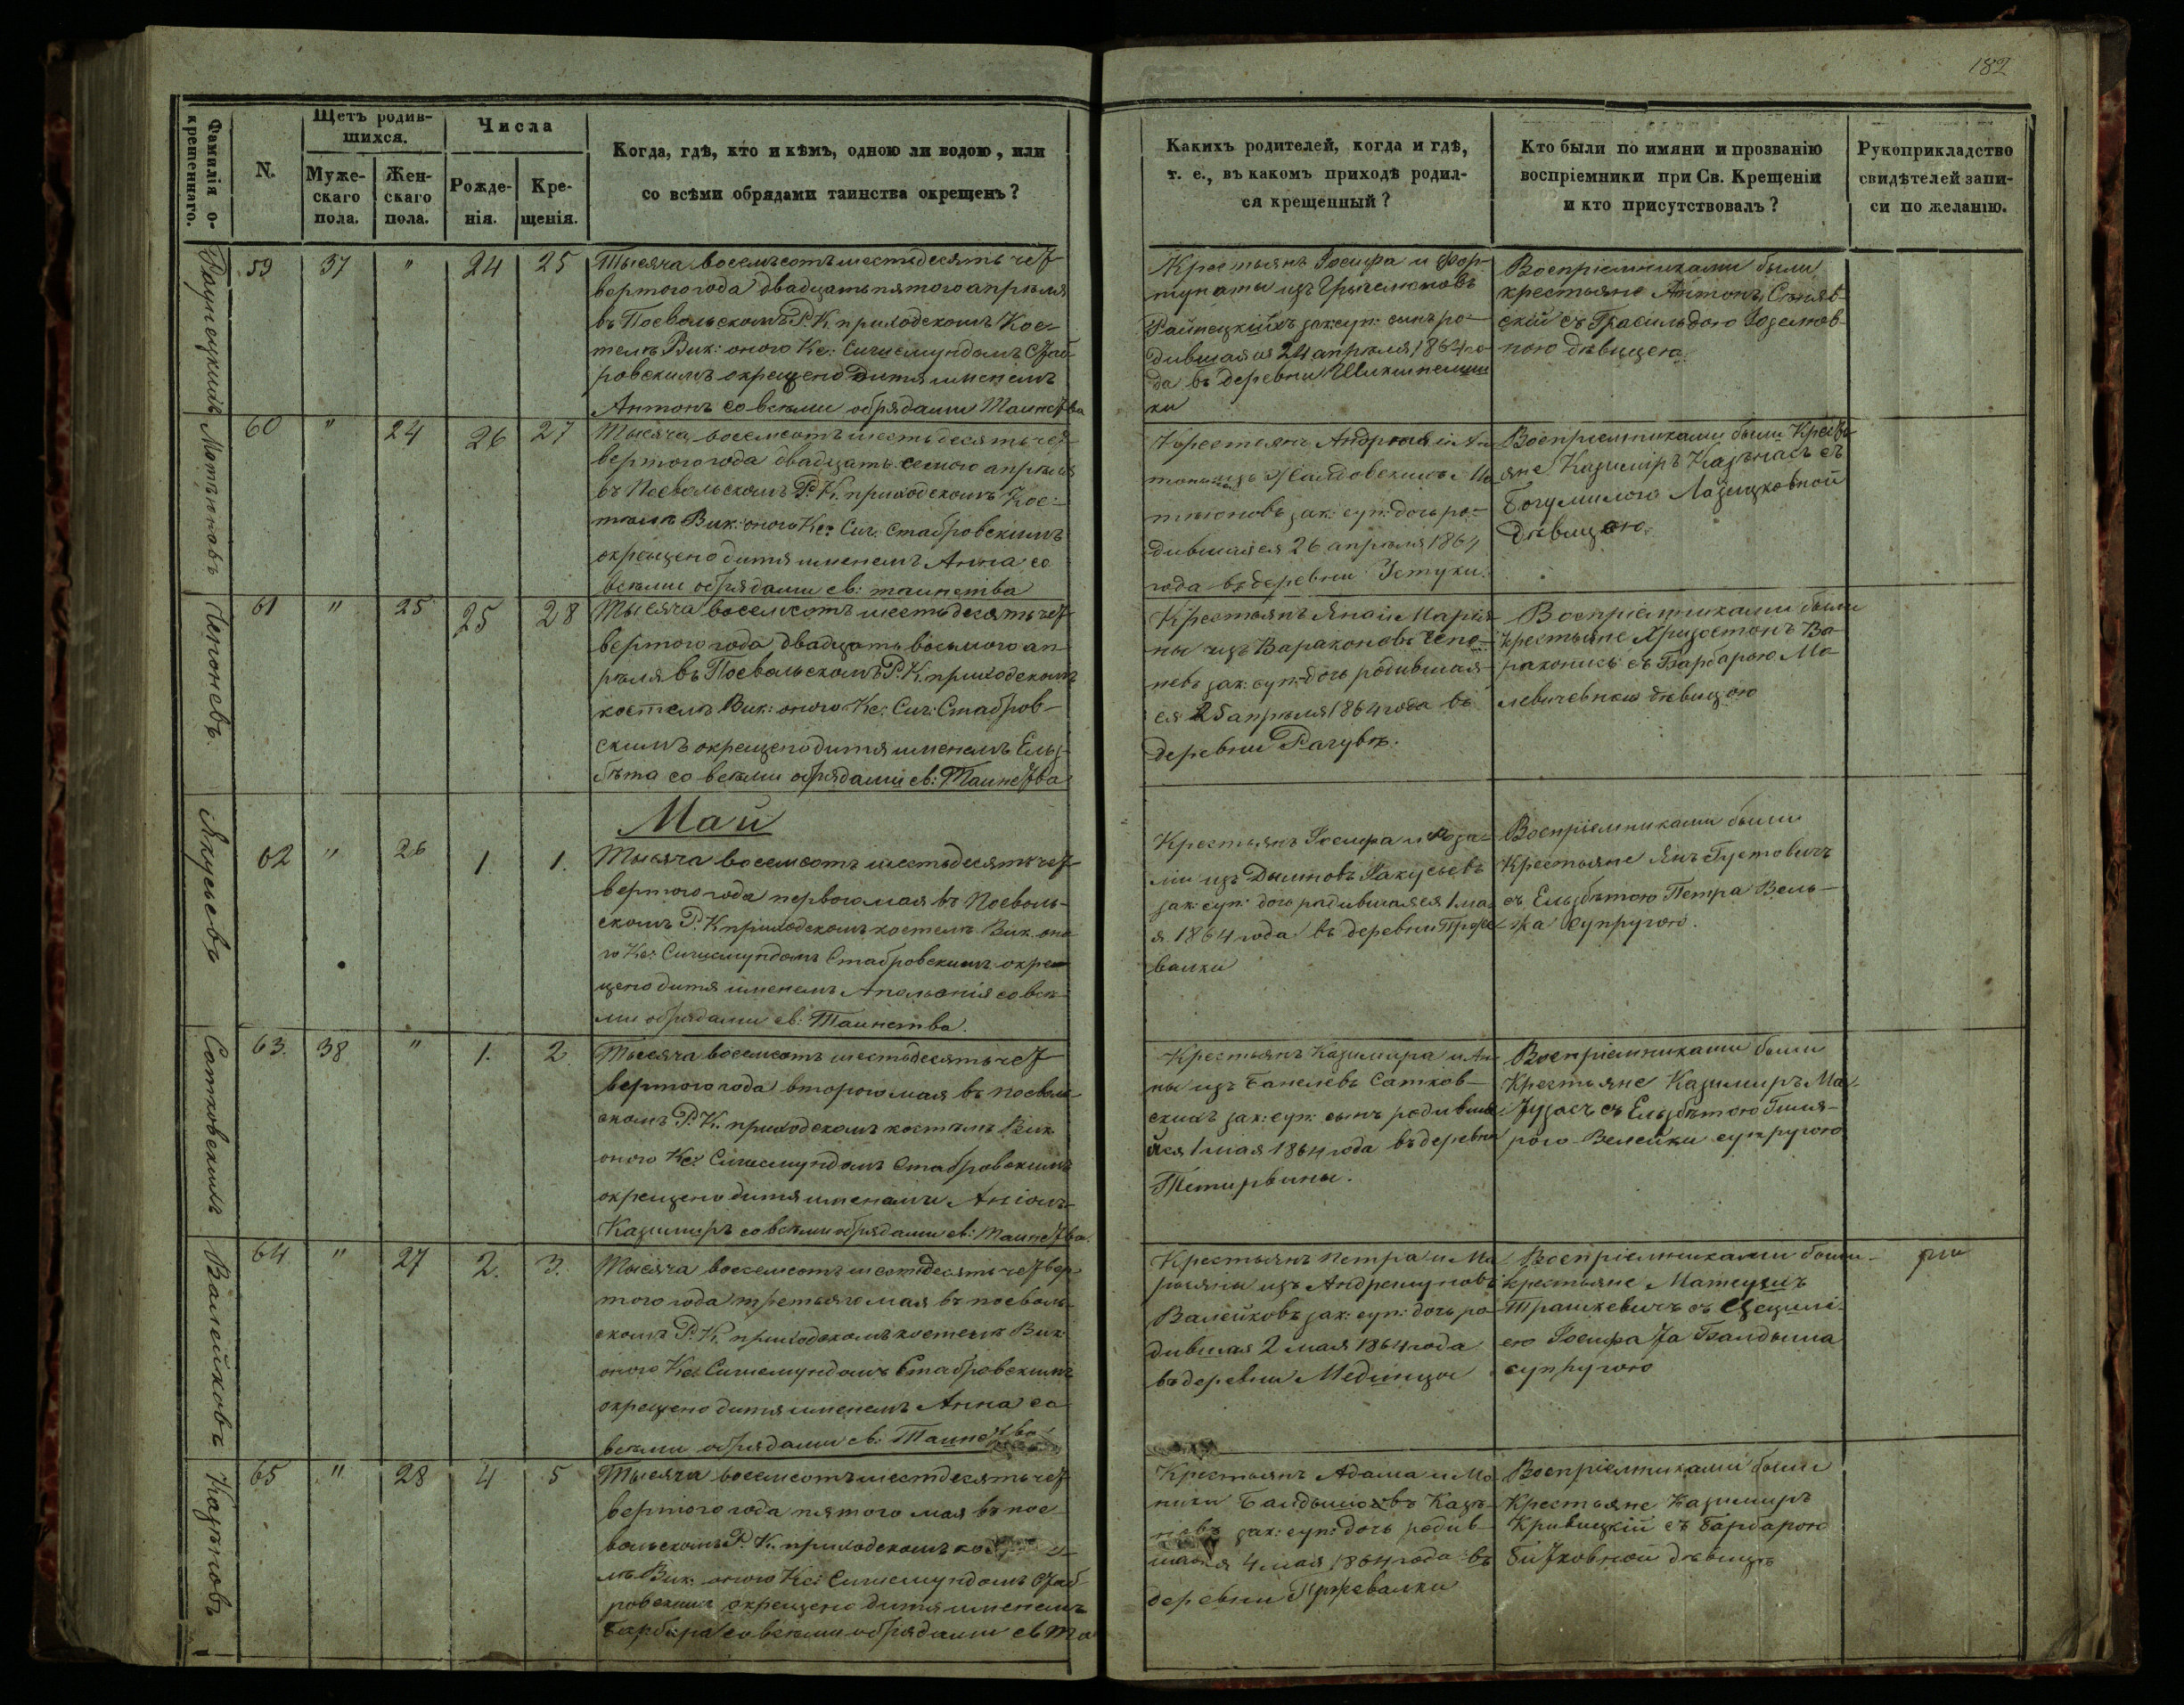 182
Фамилія о-
крещеннаго.
N.
Щетъ родив-
шихся.
Муже-
скаго
пола.
Жен-
скаго
пола.
Числа
Рожде-
нія.
Кре-
щенія.
Когда, гдѣ, кто и кѣмъ, одною ли водою, или
со всѣми обрядами таинства окрещенъ?
Какихъ родителей, когда и гдѣ,
т. е., въ какомъ приходѣ родил-
ся крещенный?
Кто были по имяни и прозванію
воспріемники при Св. Крещеніи
и кто присутствовалъ?
Рукоприкладство
свидѣтелей запи-
си по желанію.
59 37 " 24 25
Тысяча восемьсотъ шестьдесять чет
вертого года двадцать пятого апрѣля
въ Посвольскомъ Р. К. приходскомъ Кос-
телѣ Вик: оного Кс: Сигисмундомъ Стаб-
ровскимъ окрещено дитя именемъ
Антонъ со всѣми обрядами Таинства
Крестьянъ Іосифа и Фор-
тунаты изъ
зак: суп: сынъ ро-
24 апрѣля 1864 го-
да въ деревни
ки
Воспріемниками были
крестьяне Антонъ
скій съ
ною дѣвицею.
60 " 24 26 27
Тысяча восемсотъ шестьдесять чет
вертого года двадцать семого апрѣля
въ Посвольскомъ Р. К. приходскомъ Кос-
телѣ Вик: оного Кс: Сиг. Стабровскимъ
окрещено дитя именемъ Анна со
всѣми обрядами св: таинства
Крестьянъ Андрея и Ан
Ма
тюновъ зак: суп: дочь ро-
дившаяся 26 апрѣля 1864
года въ деревни Устуки.
Воспріемниками были Кресть
яне Казимиръ съ
Богумилою
дѣвицою.
Чепоневъ.
61 " 25 25 28
Тысяча восемсотъ шестьдесять чет
вертого года двадцать восьмого ап-
рѣля въ Посвольскомъ Р. К. приходскомъ
костелѣ Вик: оного Кс: Сиг: Стабров-
скимъ окрещено дитя именемъ Ельз-
бѣта со всѣми обрядами св: Таинства
Крестьянъ Яна и Марія-
ны изъ Вараконовъ Чепо-
невъ зак: суп: дочь родившая
ся 25 апрѣля 1864 года въ
деревни Рагувѣ.
Воспріемниками были
крестьяне Хризостомъ Ва-
раконисъ съ Барбарою Ма-
левичевною дѣвицою
Май
Якусьевъ
62 " 26 1. 1.
Тысяча восемсотъ шестьдесять чет
вертого года первого мая въ Посволь-
скомъ Р. К приходскомъ костелѣ Вик. оно
го Кс: Сигисмундомъ Стабровскимъ окре
щено дитя именемъ Аполонія со всѣ-
ми обрядами св: Таинства.
Крестьянъ Іосифа и Роза-
ліи изъ Дылновъ Якусьевъ
зак: суп: дочь родившаяся 1 ма-
я 1864 года въ деревни Прже
валки
Воспріемниками были
Крестьяне Янъ Густовичъ
съ Ельзбѣтою Петра Вель-
жа супругою.
Сатковскимъ
63. 38 " 1. 2.
Тысяча восемсотъ шестьдесять чет
вертого года второго мая въ посволь
скомъ Р. К. приходскомъ костелѣ Вик
оного Кс: Сигисмундомъ Стабровскимъ
окрещено дитя именемъ
Казимиръ со всѣми обрядами св: Таинства.
Крестьянъ Казимира и Ан-
ны изъ Сатков-
скихъ зак: суп: сынъ родивші
йся 1 мая 1864 года въ деревни
Тетирвины.
Воспріемниками были
Крестьяне Казимиръ Ма-
тузасъ съ Ельзбѣтою
Велейки супругою
Валейковъ
64 " 27 2. 3.
Тысяча восемсотъ шестдесять четвер-
того года третьяго мая въ посволь-
скомъ Р. К. приходскомъ костелѣ Вик:
оного Кс: Сигисмундомъ Стабровскимъ
окрещено дитя именемъ Анна со
всѣми обрядами св: Таинства
Крестьянъ Петра и Ма
рьяны изъ Андрешуновъ
Валейковъ зак: суп: дочь ро-
дившая 2 мая 1864 года
въ деревни
Воспріемниками были
крестьяне Матеушъ
Трашкевичъ съ Цецилі-
ею Іосифата Балдыша
супругою
Казѣновъ
65 " 28 4 5
Тысяча восемсотъ шестдесять чет
вертого года пятого мая въ пос-
вольскомъ Р. К. приходскомъ кос
лѣ Вик: оного Кс: Сигисмундомъ Стаб-
ровскимъ окрещено дитя именемъ
Барбара со всѣми обрядами св Та
Крестьянъ Адама и Мо-
ники Балдышовъ Казѣ-
новъ зак: суп: дочь родив-
шаяся 4 мая 1864 года въ
деревни Пржевалки
Воспріемниками были
Крестьяне Казимиръ
Кривицкій съ Барбарою
дѣвицею